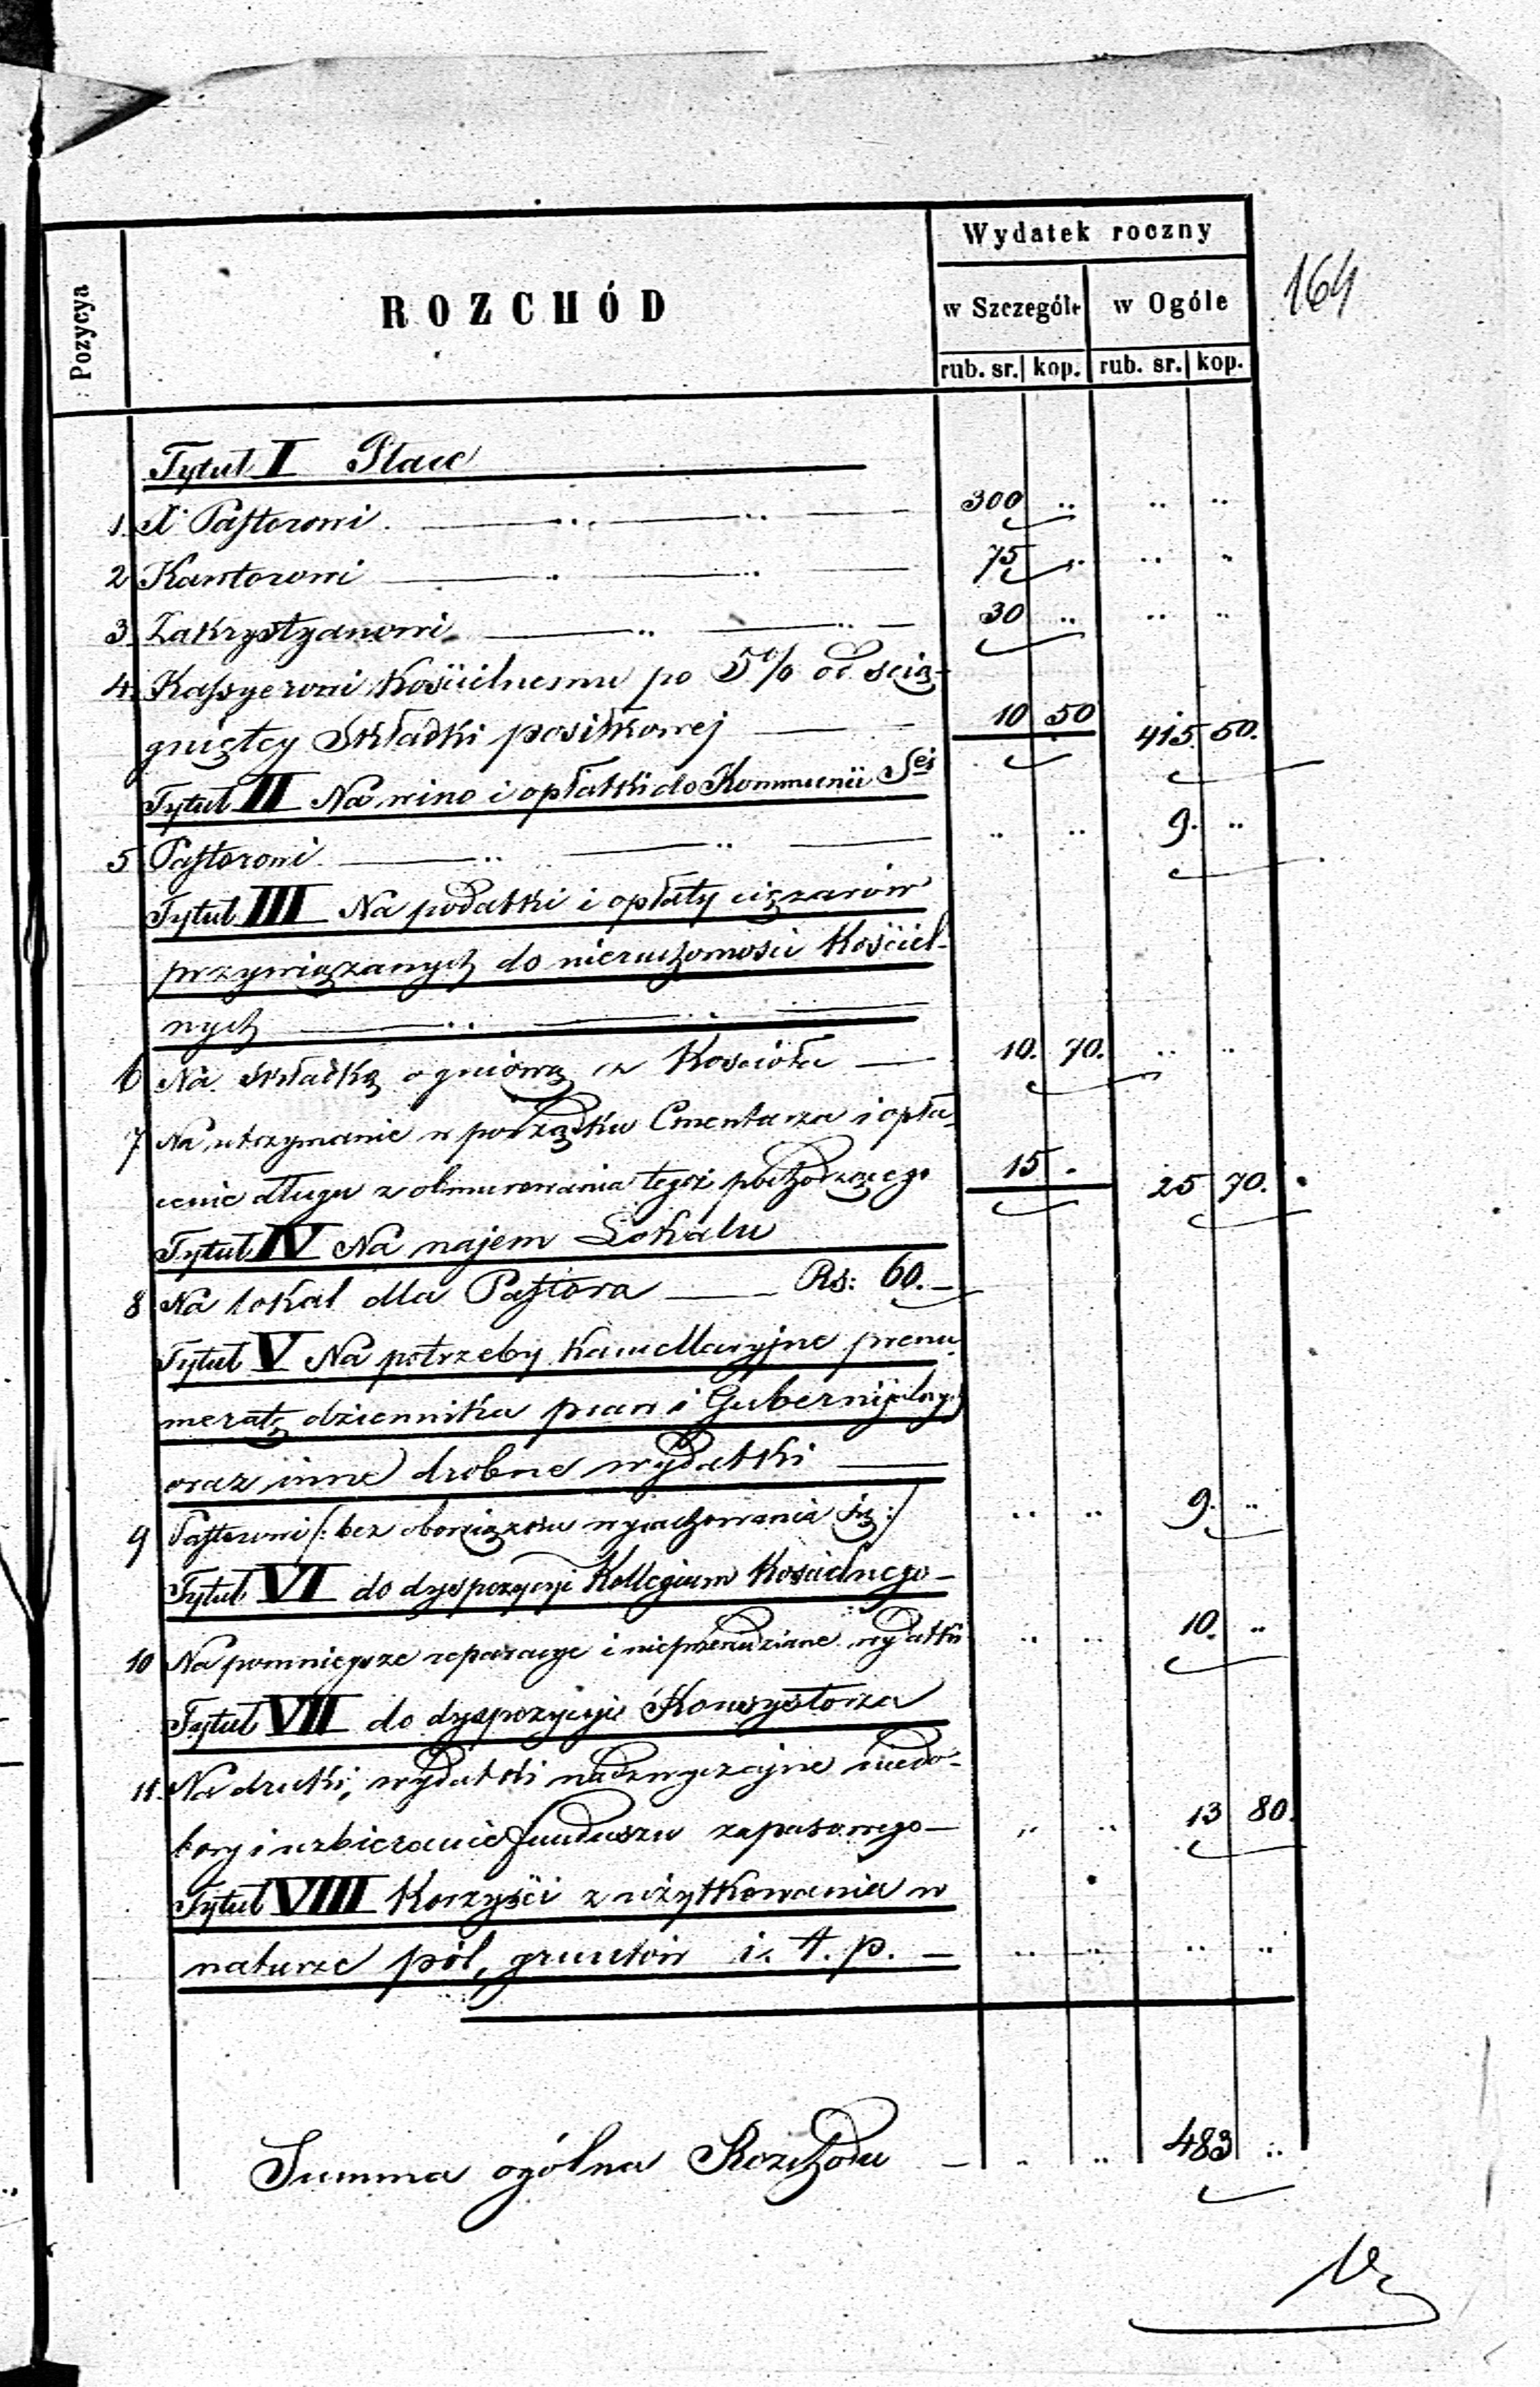 164
Wydatek roczny
Pozycya
ROZCHÓD
w Szczególe w Ogóle
rub. sr. kop. rub. sr. kop.
Tytuł I Płace
1. X. Pastorowi 300 .. .. ..
2 Kantorowi 75 .. .. ..
3. Zakrystyanowi 30 .. .. ..
4. Kassyerowi Kościelnemu po 5% od ścią-
gniętej Składki posiłkowej 10 50 415. 50.
Tytuł II Na wino i opłatki do Kommunii Sej
5 Pastorowi .. .. 9. ..
Tytuł III Na podatki i opłaty ciężarów
przywiązanych do nieruchomości Kościel-
nych
6 Na składkę ogniową z Kościoła 10. 70. .. ..
7 Na utrzymanie w porządku Cmentarza i opła-
cenie długu z obmurowania tegoż pochodzącego 15 . 25 70.
Tytuł IV Na najem Lokalu
8 Na lokal dla Pastora Rs: 60.—
Tytuł V Na potrzeby kancellaryjne prenu-
meratę dziennika praw i Gubernijalnych
oraz inne drobne wydatki
9 Pastorowi /: bez obowiązku wyrachowania się :/ .. .. 9. ..
Tytuł VI do dyspozycyi Kollegium Kościelnego —
10 Na pomniejsze reparacye i nieprzewidziane wydatki .. .. 10. ..
Tytuł VII do dyspozycyi Konsystorza
11. Na druki, wydatki nadzwyczajne niedo-
bory i uzbieranie funduszu zapasowego — .. .. 13 80.
Tytuł VIII Korzyści z użytkowania w
naturze pól, gruntów i. t. p. — .. .. .. ..
Summa ogólna Rozchodu — .. .. 483 ..